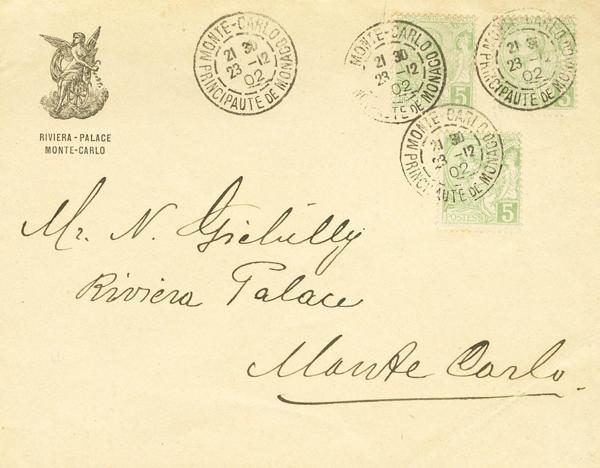 RIVIERA - PALACE
MONTE-CARLO
MONTE-CARLO
21 30
23 -12
02
PRINCIPAUTÉ DE MONACO
MONTE-CARLO
21 30
23 -12
02
PRINCIPAUTÉ DE MONACO
5
MONTE-CARLO
21 30
23 -12
02
PRINCIPAUTÉ DE MONACO
5
MONTE-CARLO
21 30
23 -12
02
PRINCIPAUTÉ DE MONACO
POSTES
5
Mr. N.
Riviera Palace
Monte Carlo.